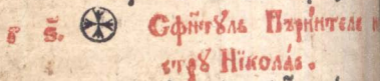 г ѕ҃. Сфи́нтꙋль Пъри́нтеле н
строу Нїкола́е.